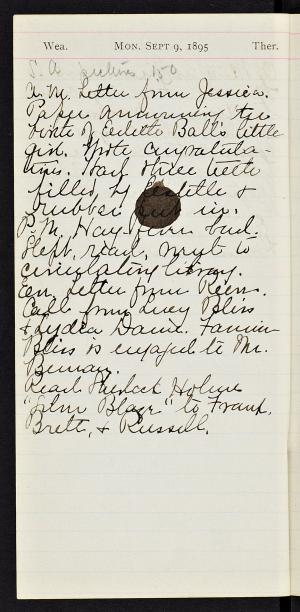 Wea. MON. SEPT 9, 1895 Ther.
S. A. pictures 150
A.M. Letter from Jessica.
Paper announcing the
birth of Ball's little
girl. Wrote congratula-
tions. Had three teeth
filled, by &
rubber in.
P.M. Hay fever bad.
Slept, read, went to
circulating library.
Eve. Letter from
Call from Lucy Bliss
& Lydia Dame. Fannie
Bliss is engaged to Mr.
Beman.
Read Sherlock Holmes
"Silver Blaze" to Frank,
Brett, & Russell.